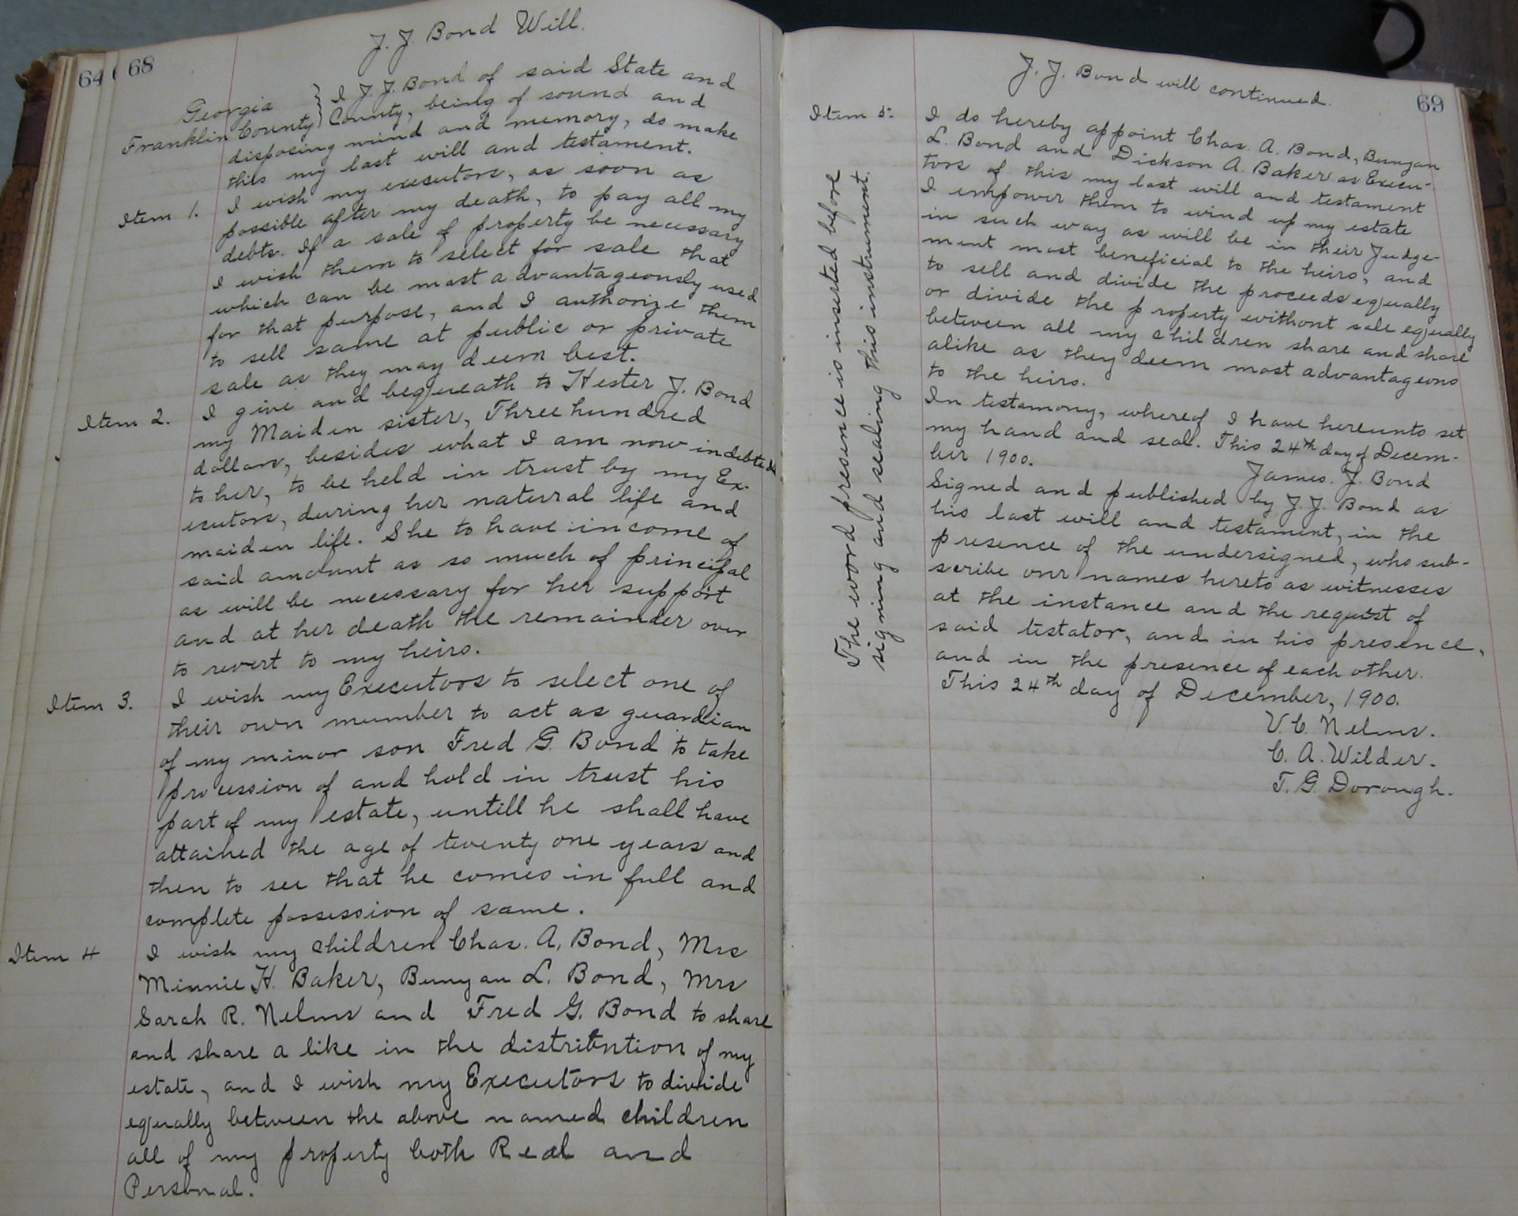 64
68
J. J. Bond Will.
Georgia
Franklin County
I J. J. Bond of said State and
County, being of sound and
disposing mind and memory, do make
this my last will and testament.
Item 1. I wish my executors, as soon as
possible after my death, to pay all my
debts. If a sale of property be necessary
I wish them to select for sale that
which can be most advantageously used
for that purpose, and I authorize them
to sell same at public or private
sale as they may deem best.
Item 2. I give and beqeueath to Hester J. Bond
my Maiden sister, Three hundred
dollars, besides what I am now indebted
to her, to be held in trust by my Ex-
ecutors, during her natural life and
maiden life. She to have income of
said amount as so much of principal
as will be necessary for her support
and at her death the remainder over
to revert to my heirs.
Item 3. I wish my Executors to select one of
their own number to act as guardian
of my minor son Fred G. Bond to take
procession of and hold in trust his
part of my estate, untill he shall have
attained the age of twenty one years and
then to see that he comes in full and
complete possession of same.
Item 4 I wish my children Chas. A. Bond, Mrs
Minnie H. Baker, Bunyan L. Bond, Mrs
Sarah R. Nelms and Fred G. Bond to share
and share a like in the distribution of my
estate, and I wish my Executors to divide
equally between the above named children
all of my property both Real and
Personal.
J. J. Bond will continued.
69
Item 5. I do hereby appoint Chas. A. Bond, Bunyan
L. Bond and Dickson A. Baker as Execu-
tors of this my last will and testament
I empower them to wind up my estate
in such way as will be in their Judge-
ment most beneficial to the heirs, and
to sell and divide the proceeds equally
or divide the property without sale equally
between all my children share and share
alike as they deem most advantageous
to the heirs.
In testamony, whereof I have hereunto set
my hand and seal. This 24th day of Decem-
ber 1900.
James. J. Bond
Signed and published by J. J. Bond as
his last will and testament, in the
presence of the undersigned, who sub-
scribe our names hereto as witnesses
at the instance and the request of
said testator, and in his presence,
and in the presence of each other.
This 24th day of December, 1900.
V. C. Nelms.
C. A. Wilder.
T. G. Dorough.
The word presence is inserted before
signing and sealing this instrument.